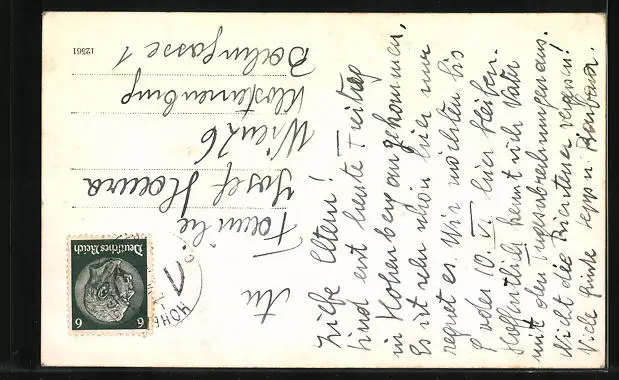 Liebe Eltern!
Sind erst heute Freitag
in Hohenberg angekommen,
Es ist sehr schön hier nur
regnet es. Wir möchten bis
9 oder 10. VI. hier bleiben.
Hoffentlich kennt sich Vater
mit den Zugsabrechnungen aus.
Nicht die vergessen!
Viele Grüße Sepp u. Barbara.
An
Familie
Josef
Wien 26
Klosterneuburg
1
12561
Deutsches Reich
6 6
HOHE